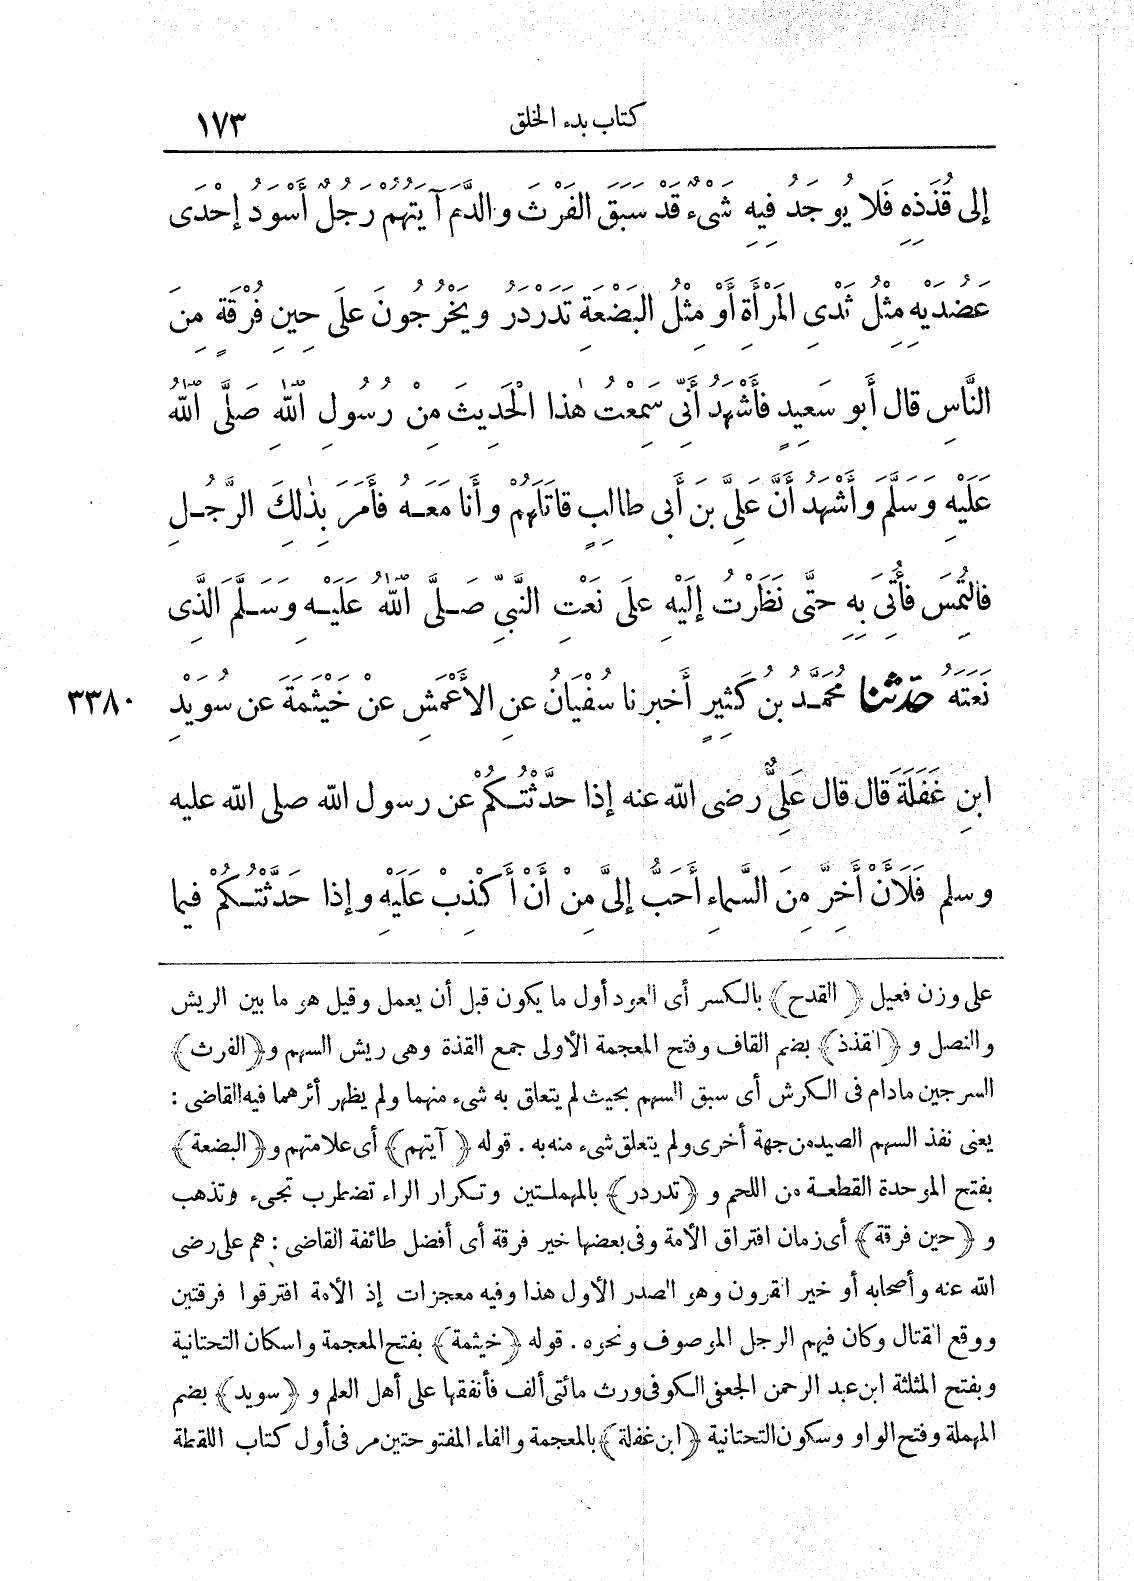 كتاب بدء الخلق ١٧٣
إلى قُذَذِهِ فَلا يُوجَدُ فِيهِ شَىْءٌ قَدْ سَبَقَ الفَرْثَ والدَّمَ آيَتُهُمْ رَجُلٌ أَسْوَدُ إحْدَى
عَضُدَيْهِ مِثْلُ ثَدْىِ المَرْأَةِ أَوْ مِثْلُ البَضْعَةِ تَدَرْدَرُ ويَخْرُجُونَ عَلَى حِينِ فُرْقَةٍ مِنَ
النَّاسِ قال أَبو سَعِيدٍ فأَشْهَدُ أَنِّى سَمِعْتُ هٰذا الْحَدِيثَ مِنْ رُسُولِ اللّٰهِ صَلَّى اللّٰهُ
عَلَيْهِ وَسَلَّمَ وأَشْهَدُ أَنَّ عَلِىَّ بنَ أَبى طالِبٍ قاتَلَهُمْ وأَنا مَعَهُ فأَمَرَ بِذٰلِكَ الرَّجُلِ
فالتُمِسَ فأُتِىَ بِهِ حتَّى نَظَرْتُ إلَيْهِ عَلَى نَعْتِ النَّبِىِّ صَلَّى اللّٰهُ عَلَيْهِ وَسَلَّمَ الَّذِى
نَعَتَهُ حَدّثنا مُحَمَّدُ بنُ كَثِيرٍ أَخبرنا سُفْيَانُ عنِ الأَعْمَشِ عنْ خَيْثَمَةَ عن سُوَيْدِ ٣٣٨٠
ابنِ غَفَلَةَ قال قال عَلِىٌّ رضى الله عنه إذا حدَّثْتُكُمْ عن رسول الله صلى الله عليه
وسلم فَلَأَنْ أَخِرَّ مِنَ السَّماءِ أَحَبُّ إلىَّ مِنْ أَنْ أَكْذِبْ عَلَيْهِ وإذا حَدَّثْتُكُمْ فيما
على وزن فعيل ﴿القدح﴾ بالكسر أى العود أول ما يكون قبل أن يعمل وقيل هو ما بين الريش
والنصل و﴿القذذ﴾ بضم القاف وفتح المعجمة الأولى جمع القذة وهى ريش السهم و﴿الفرث﴾
السرجين مادام فى الكرش أى سبق السهم بحيث لم يتعلق به شىء منهما ولم يظهر أثرهما فيه القاضى :
يعنى نفذ السهم الصيد من جهة أخرى ولم يتعلق شىء منه به . قوله ﴿آيتهم﴾ أى علامتهم و﴿البضعة﴾
بفتح الموحدة القطعة من اللحم و﴿تدردر﴾ بالمهملتين وتكرار الراء تضطرب تجىء وتذهب
و﴿حين فرقة﴾ أى زمان افتراق الأمة وفى بعضها خير فرقة أى أفضل طائفة القاضى : هم على رضى
الله عنه وأصحابه أو خير القرون وهو الصدر الأول هذا وفيه معجزات إذ الأمة افترقوا فرقتين
ووقع القتال وكان فيهم الرجل الموصوف ونحوه . قوله ﴿خيثمة﴾ بفتح المعجمة واسكان التحتانية
وبفتح المثلثة ابن عبد الرحمن الجعفى الكوفى ورث مائتى ألف فأنفقها على أهل العلم و﴿سويد﴾ بضم
المهملة وفتح الواو وسكون التحتانية ﴿ابن غفلة﴾ بالمعجمة والفاء المفتوحتين مر فى أول كتاب اللقطة